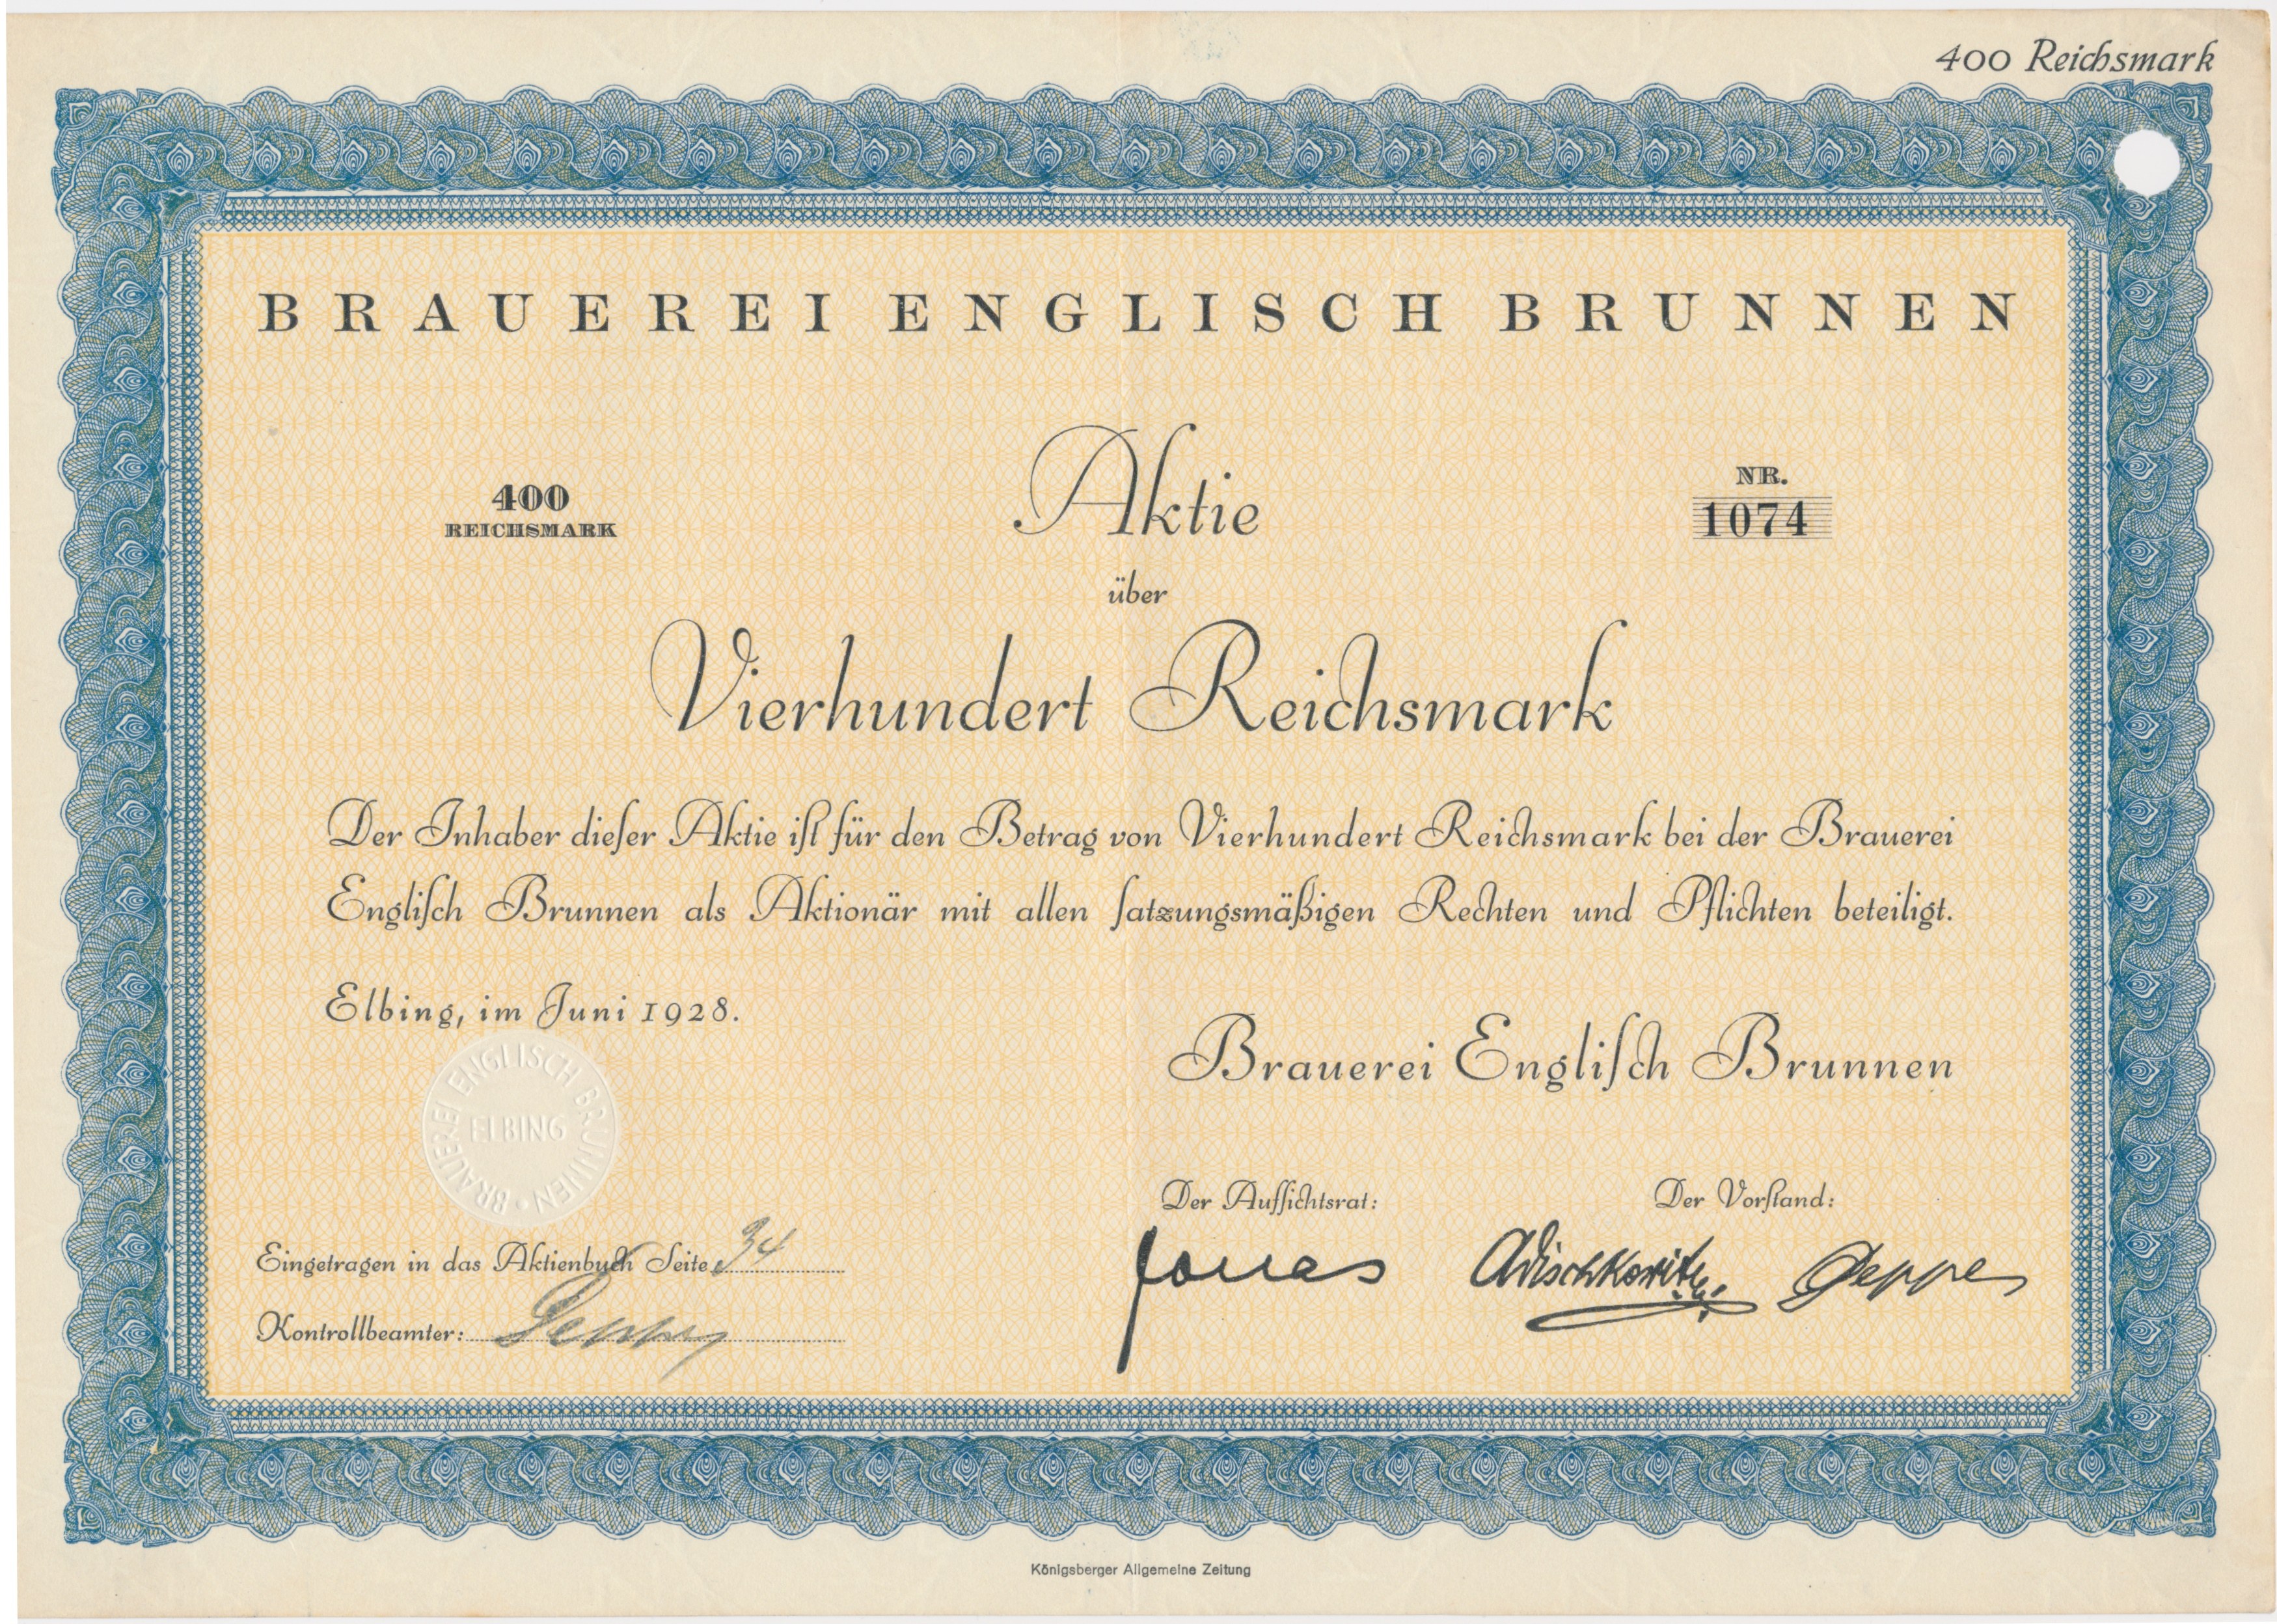 400 Reichsmark
BRAUEREI ENGLISCH BRUNNEN
400
REICHSMARK
Aktie
NR.
1074
über
Vierhundert Reichsmark
Der Inhaber dieſer Aktie iſt für den Betrag von Vierhundert Reichsmark bei der Brauerei
Engliſch Brunnen als Aktionär mit allen ſatzungsmäßigen Rechten und Pflichten beteiligt.
Elbing, im Juni 1928.
BRAUEREI ENGLISCH BRUNNEN •
ELBING
Brauerei Engliſch Brunnen
Der Aufſichtsrat:
Der Vorſtand:
Jonas
Eingetragen in das Aktienbuch Seite 34
Kontrollbeamter:
Königsberger Allgemeine Zeitung